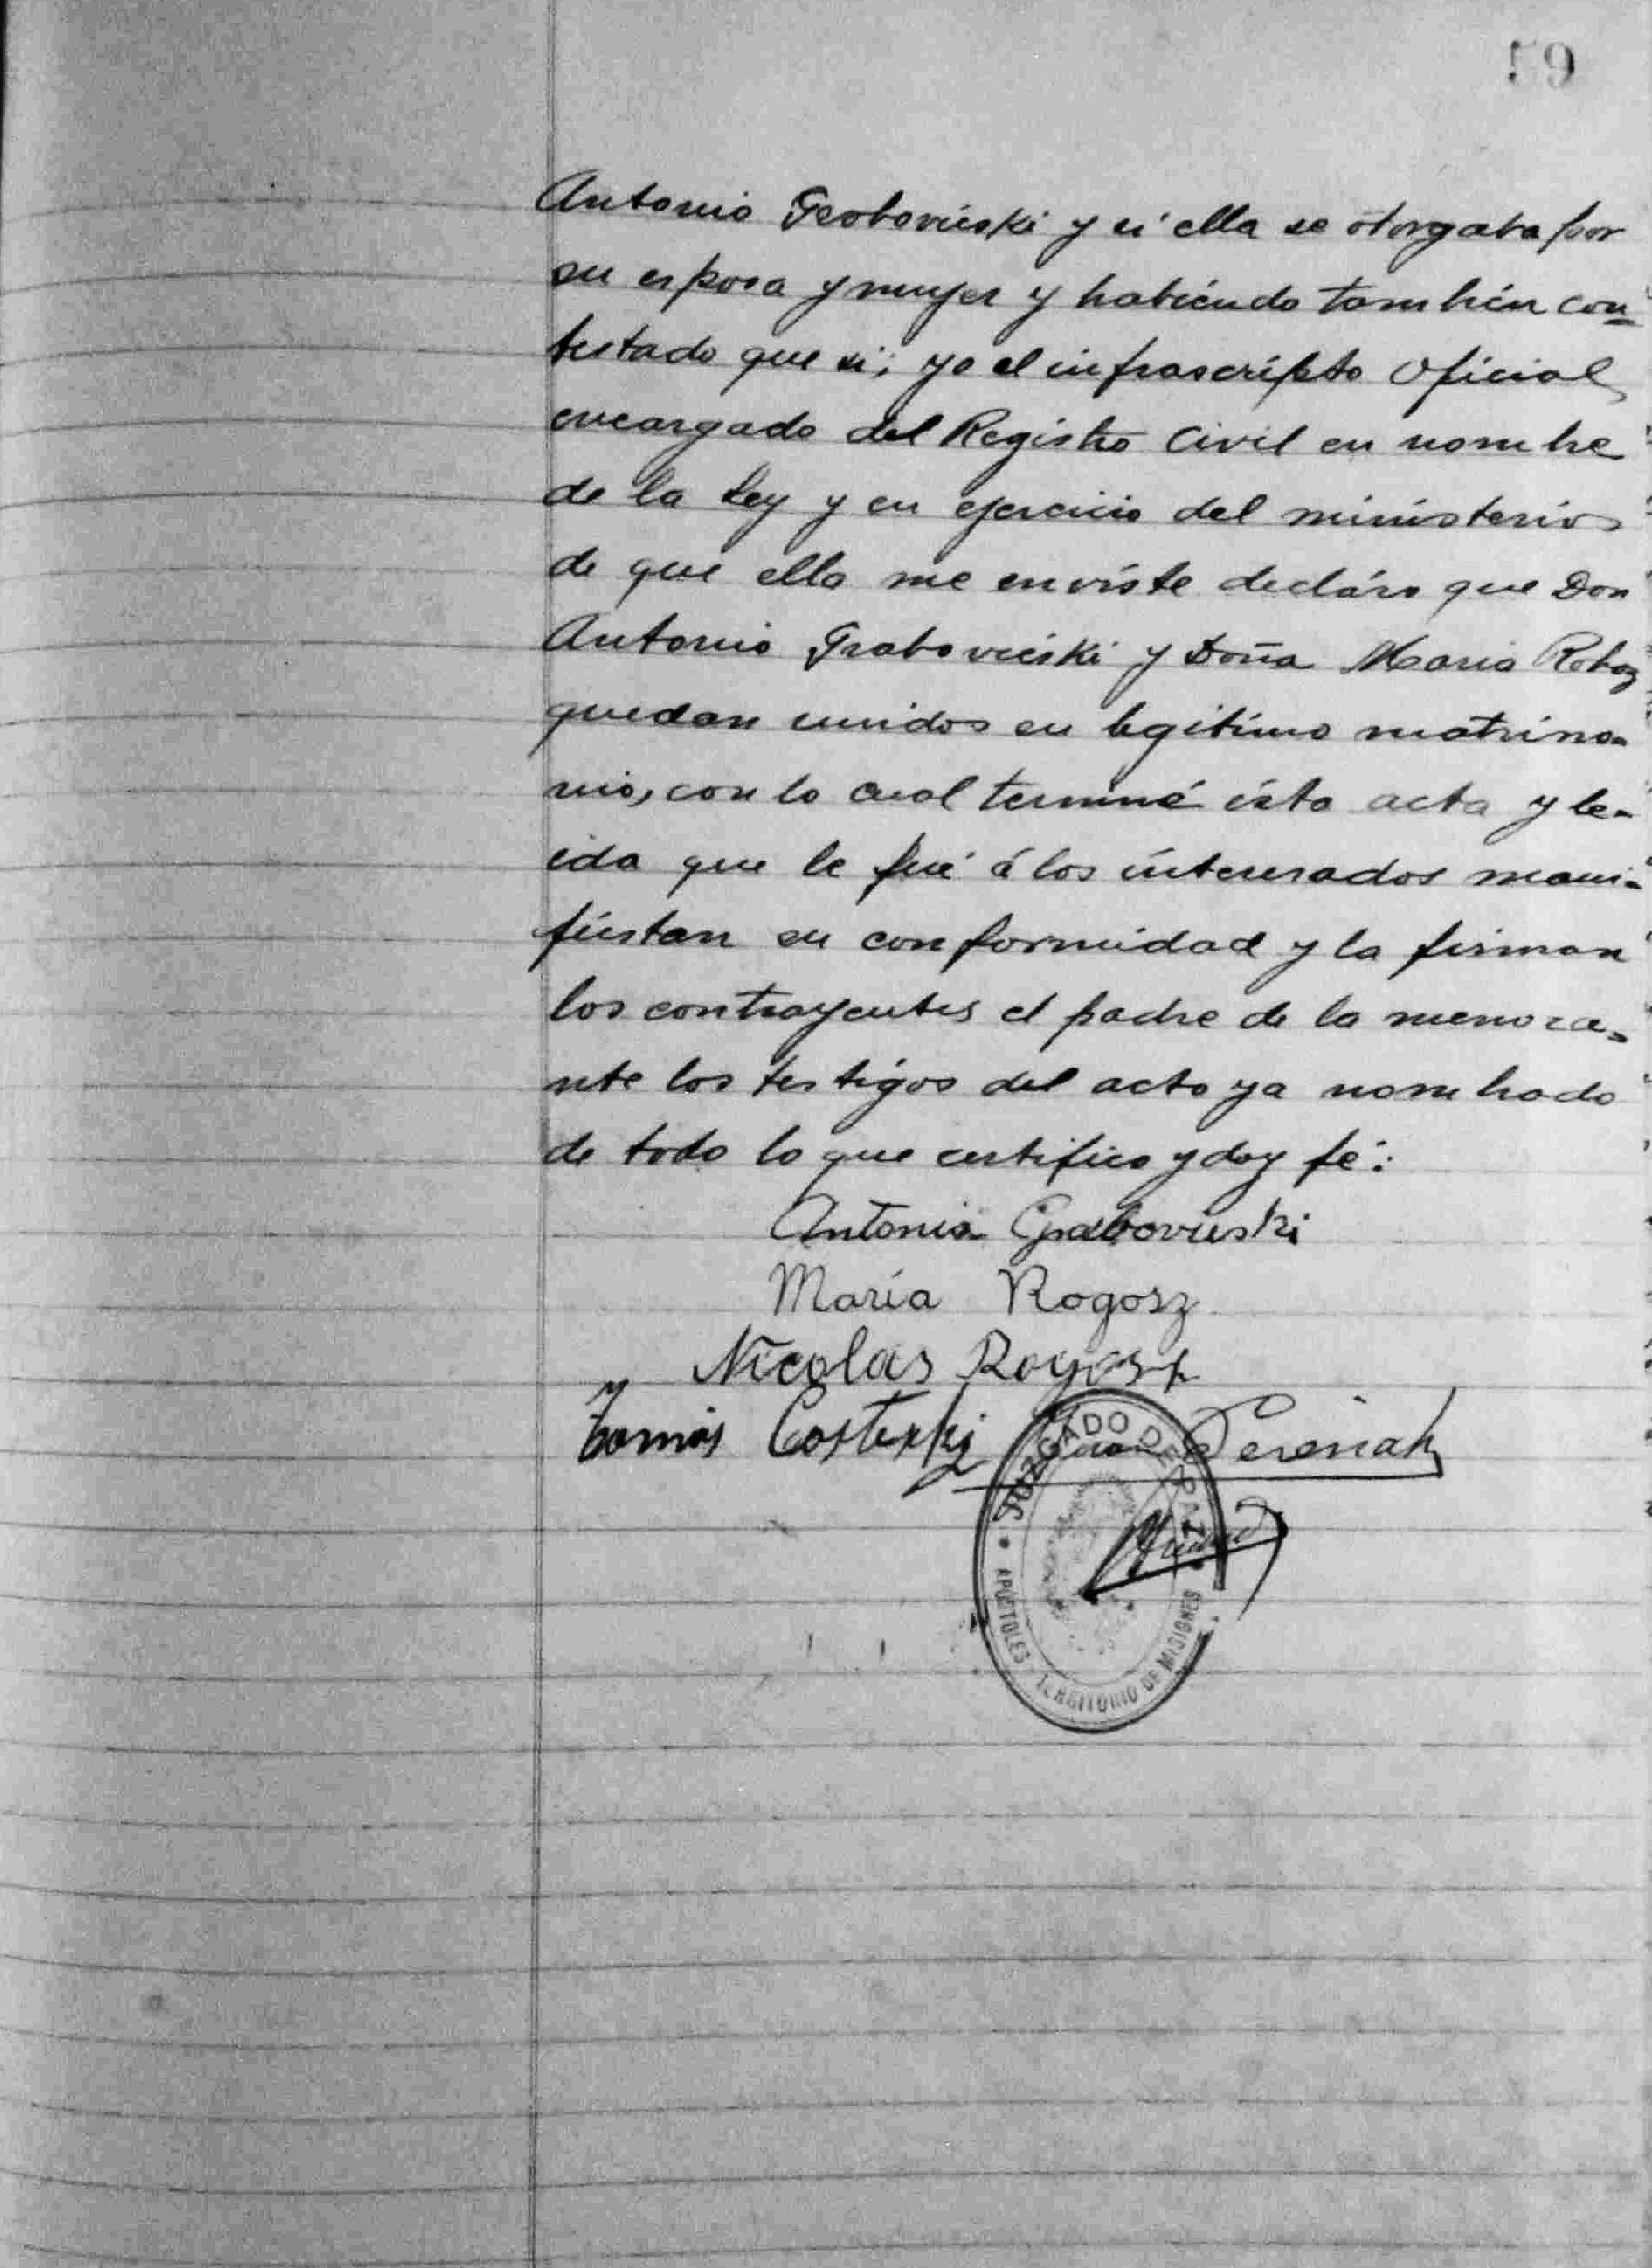 59
Antonio Grabovieski y si ella se otorgaba por
su esposa y mujer y habiéndo también con=
testado que si; yo el infrascripto Oficial
encargado del Registro Civil en nombre
de la Ley y en ejercicio del ministerio
de que ella me enviste decláro que Don
Antonio Grabovieski y Doña Maria Rohoz
quedan unidos en legitimo matrimo-
nio, con lo cual terminé ésta acta y le-
ida que le fué á los interesados mani-
fiéstan su conformidad y la firman
los contrayentes el padre de la menor a-
nte los testigos del acto ya nombrado
de todo lo que certifico y doy fé:
Antonio Grabovieski
María Rogosz
Nicolas Rogosz
Tomás
JUZGADO DE PAZ
APÓSTOLES TERRITORIO DE MISIONES